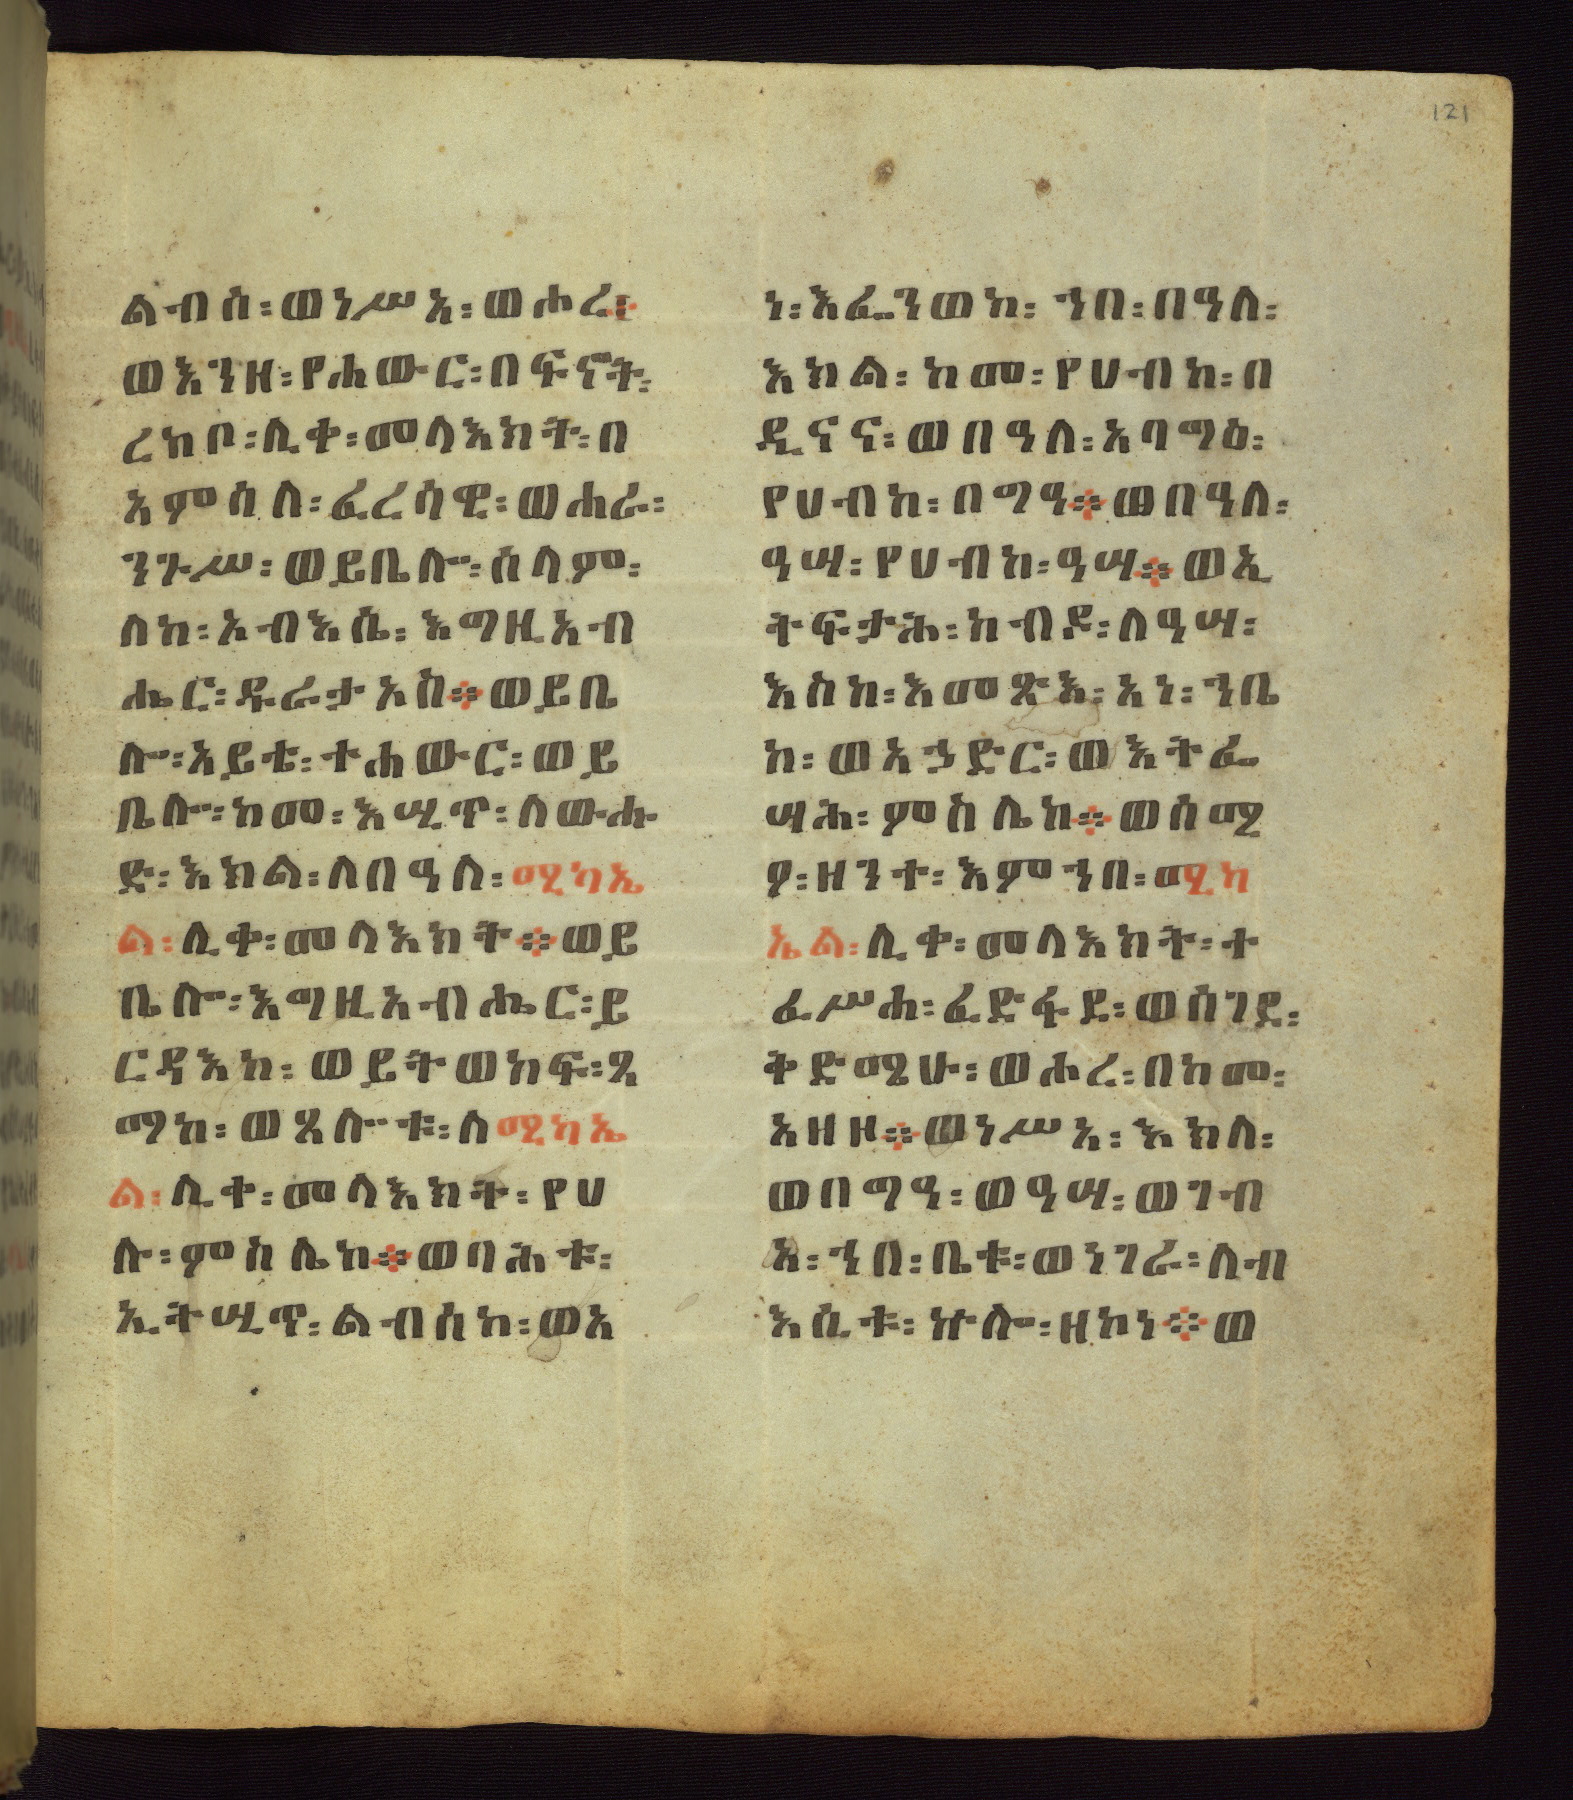 121
ልብሰ፡ወነሥአ፡ወሖረ፡
ወእንዘ፡የሐውር፡በፍኖት፡
ረከቦ፡ሊቀ፡መላእክት፡በ
አምሳለ፡ፈረሳዊ፡ወሐራ፡
ንጉሥ፡ወይቤሎ፡ሰላም፡
ለከ፡አብእሴ፡እግዚአብ
ሔር፡ዱራታኦስ፨ወይቤ
ሎ፡አይቴ፡ተሐውር፡ወይ
ቤሎ፡ከመ፡እሢጥ፡ለውሑ
ድ፡እክል፡ለበዓለ፡ሚካኤ
ል፡ሊቀ፡መላእክት፨ወይ
ቤሎ፡እግዚአብሔር፡ይ
ርዳእከ፡ወይትወከፍ፡ጻ
ማከ፡ወጸሎቱ፡ለሚካኤ
ል፡ሊቀ፡መላእክት፡የሀ
ሉ፡ምስሌከ፨ወባሕቱ፡
ኢትሢጥ፡ልብሰከ፡ወአ
ነ፡እፌንወከ፡ኀበ፡በዓለ፡
እክል፡ከመ፡የሀብከ፡በ
ዲናና፡ወበዓለ፡አባግዕ፡
የሀብከ፡በግዓ፨ወበዓለ፡
ዓሣ፡የሀብከ፡ዓሣ፨ወኢ
ትፍታሕ፡ከብዶ፡ለዓሣ፡
እስከ፡እመጽእ፡አነ፡ኀቤ
ከ፡ወአኃድር፡ወእትፌ
ሣሕ፡ምስሌከ፨ወሰሚ
ዖ፡ዘንተ፡እምኀበ፡ሚካ
ኤል፡ሊቀ፡መላእክት፡ተ
ፈሥሐ፡ፈድፋደ፡ወሰገደ፡
ቅድሜሁ፡ወሖረ፡በከመ፡
አዘዞ፨ወነሥአ፡እክለ፡
ወበግዓ፡ወዓሣ፡ወገብ
አ፡ኀበ፡ቤቱ፡ወነገራ፡ለብ
እሲቱ፡ኵሎ፡ዘኮነ፨ወ